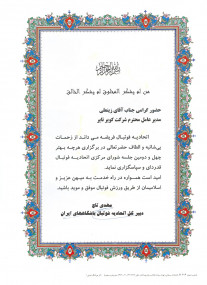 من لم یشکر المخلوق لم یشکر الخالق
حضور گرامی جناب آقای زینعلی
مدیر عامل محترم شرکت کویر تایر
اتحادیه فوتبال فریضه می داند از زحمات
بی‌شائبه و الطاف حضرتعالی در برگزاری هرچه بهتر
چهل و دومین جلسه شورای مرکزی اتحادیه فوتبال
قدردانی و سپاسگزاری نماید.
امید است همواره در راه خدمت به میهن عزیز و
اسلامیمان از طریق ورزش فوتبال موفق و موید باشید.
مهدی تاج
دبیر کل اتحادیه فوتبال باشگاههای ایران